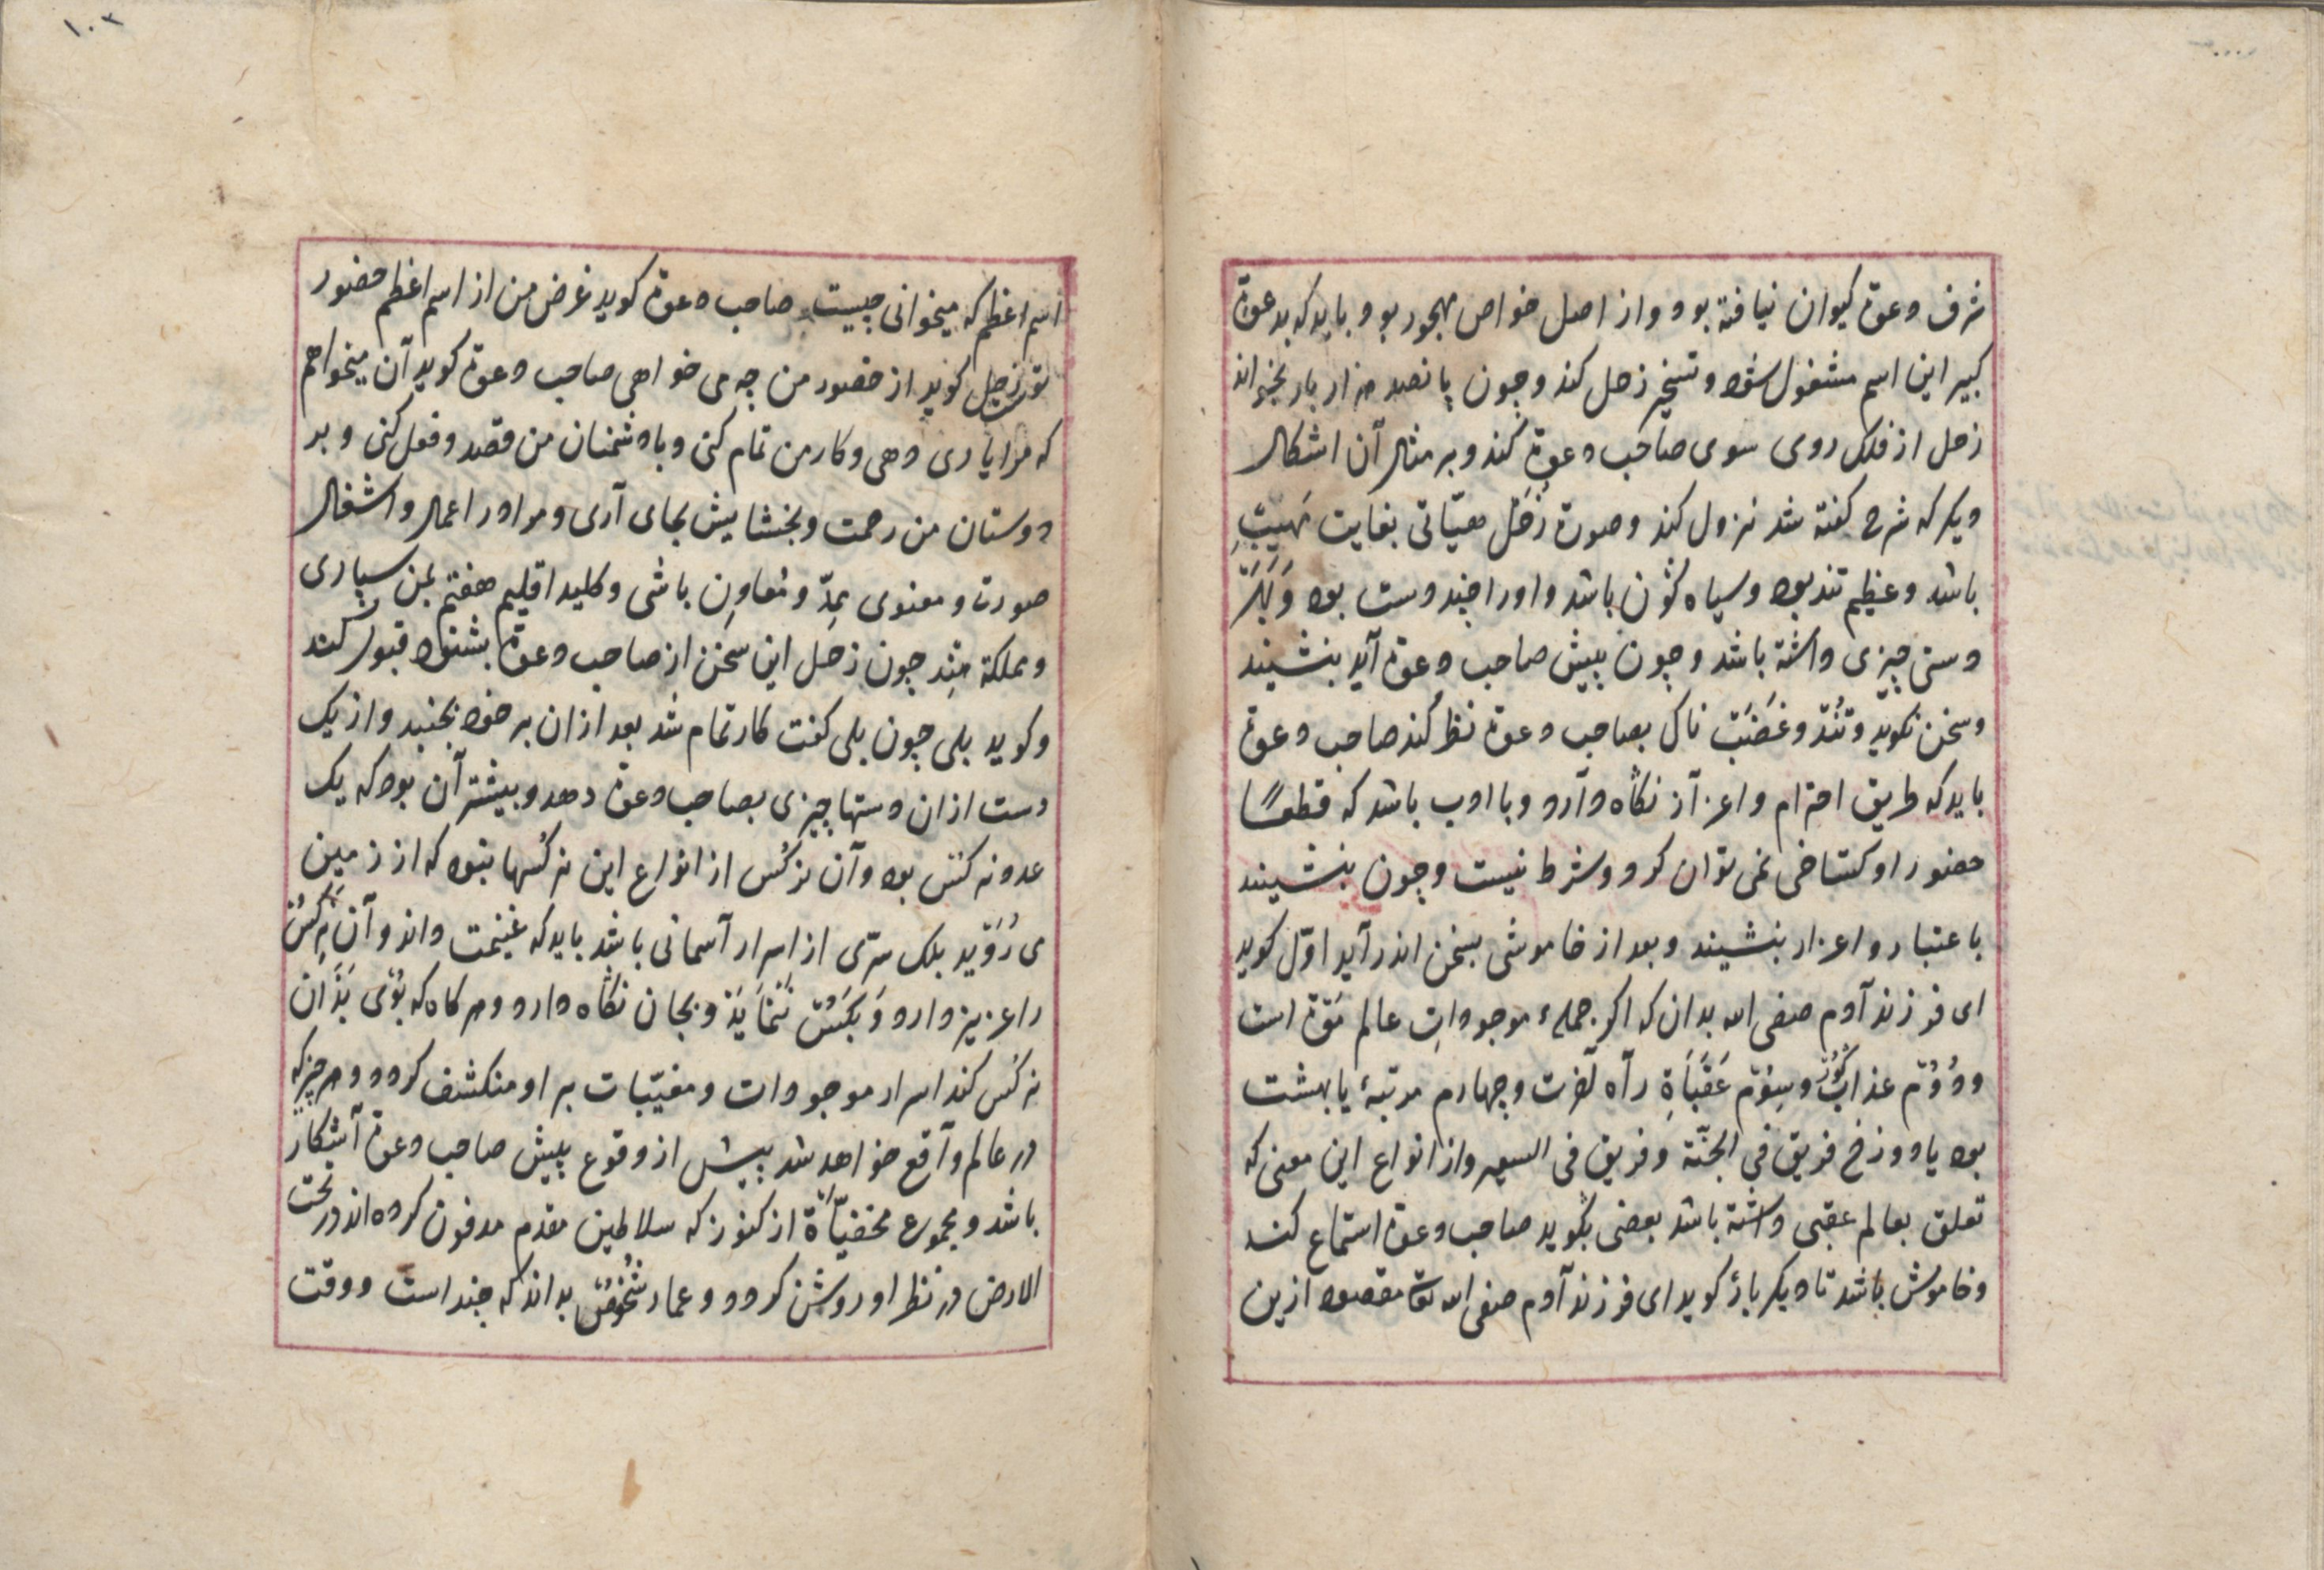 شرف دعوة کیوان نیافته بود و از اصل خواص مهجور بود و باید که بدعوة
کبیر این اسم مشغول شود و تسخیر زحل کند و چون پانصد هزار بار بخواند
زحل از فلک روی سوی صاحب دعوة کند و بر مثال آن اشکال
دیکر که شرح کفته شد نزول کند و صورة زحل بغایت مهیب
باشد و عظیم تند بود و سیاه کون باشد و اورا چند دست بود و بهر
دستی چیزی داشته باشد و چون پیش صاحب دعوة آید بنشیند
و سخن نکوید و تند و غضب ناک بصاحب دعوة نظر کند صاحب دعوة
باید که طریق احترام و اعزاز نکاه دارد و با ادب باشد که قطعًا
حضور او کستاخی نمی توان کرد و شرط نیست و چون بنشیند
با عتبار و اعزاز بنشیند و بعد از خاموشی بسخن اندر آید اوّل کوید
ای فرزند آدم صفی الله بدان که اکر جملهٔ موجودات عالم موت است
و دوم عذاب کور و سوم عقبات راه آخرت و چهارم مرتبهٔ یا بهشت
بود یا دوزخ فریق فی الجنّة و فریق فی السعیر و از انواع این معنی که
تعلق بعالم عقبی داشته باشد بعضی بکوید صاحب دعوة استماع کند
و خاموش باشد تا دیکر باز کوید ای فرزند آدم صفی الله مقصود ازین
۱۰۲
اسم اعظم که میخوانی چیست صاحب دعوة کوید غرض من از اسم اعظم حضور
تو زحل کوید از حضور من چه می خواهی صاحب دعوة کوید آن میخواهم
که مرا یاری دهی و کار من تمام کنی و با دشمنان من قصد و فعل کنی و بر
دوستان من رحمت و بخشایش بجای آری و مرا در اعمال و اشغال
صورت و معنوی ممدّ و معاون باشی و کلید اقلیم هفتم بمن سپاری
و مملکة هند چون زحل این سخن از صاحب دعوة بشنود قبول کند
و کوید بلی چون بلی کفت کار تمام شد بعد ازان بر خود بجنبد و از یک
دست ازان دستها چیزی بصاحب دعوة دهد و بیشتر آن بود که یک
عدد نرکس بود و آن نرکس از انواع این نرکسها نبود که از زمین
می روید بلک سرّی از اسرار آسمانی باشد باید که غنیمت داند و آن نرکس
را عزیز دارد و بکس ننماید و بجان نکاه دارد و هر کاه که بوی بدان
نرکس کند اسرار موجودات و مغیّبات بر او منکشف کردد و هر چیز که
در عالم واقع خواهد شد پیش از وقوع پیش صاحب دعوة آشکار
باشد و مجموع مخفیّات از کنوز که سلاطین مقدم مدفون کرده اند در تحت
الارض در نظر او روشن کردد و عمار شخوص بداند که چند است و وقت